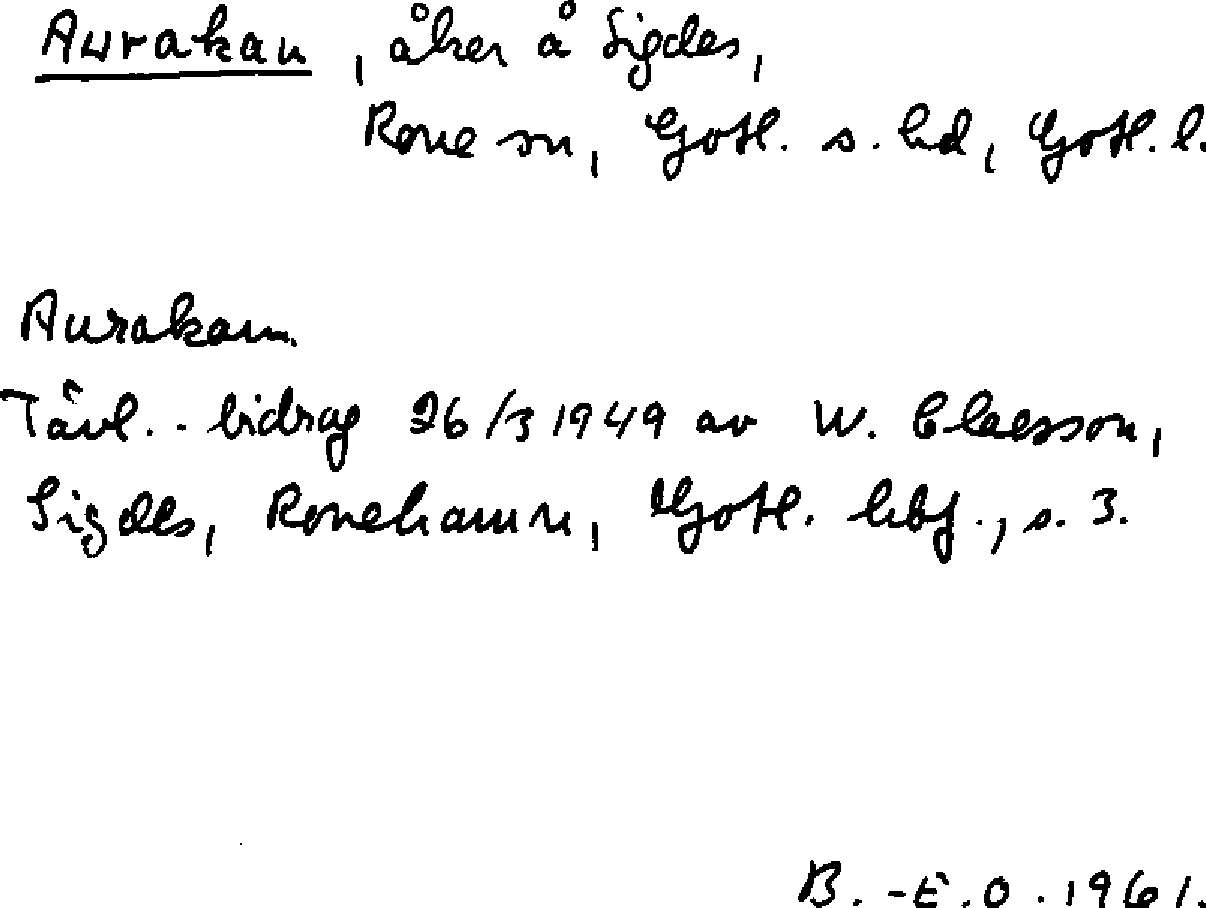 Aurakau, åker å Sigdes,
Rone sn, Gotl. s. hd, Gotl. l.
Aurakaun.
Tävl.-bidrag 26/3 1949 av W. Claesson,
Sigdes, Ronehamn, Gotl. hbf., s. 3.
B.-E.O. 1961.